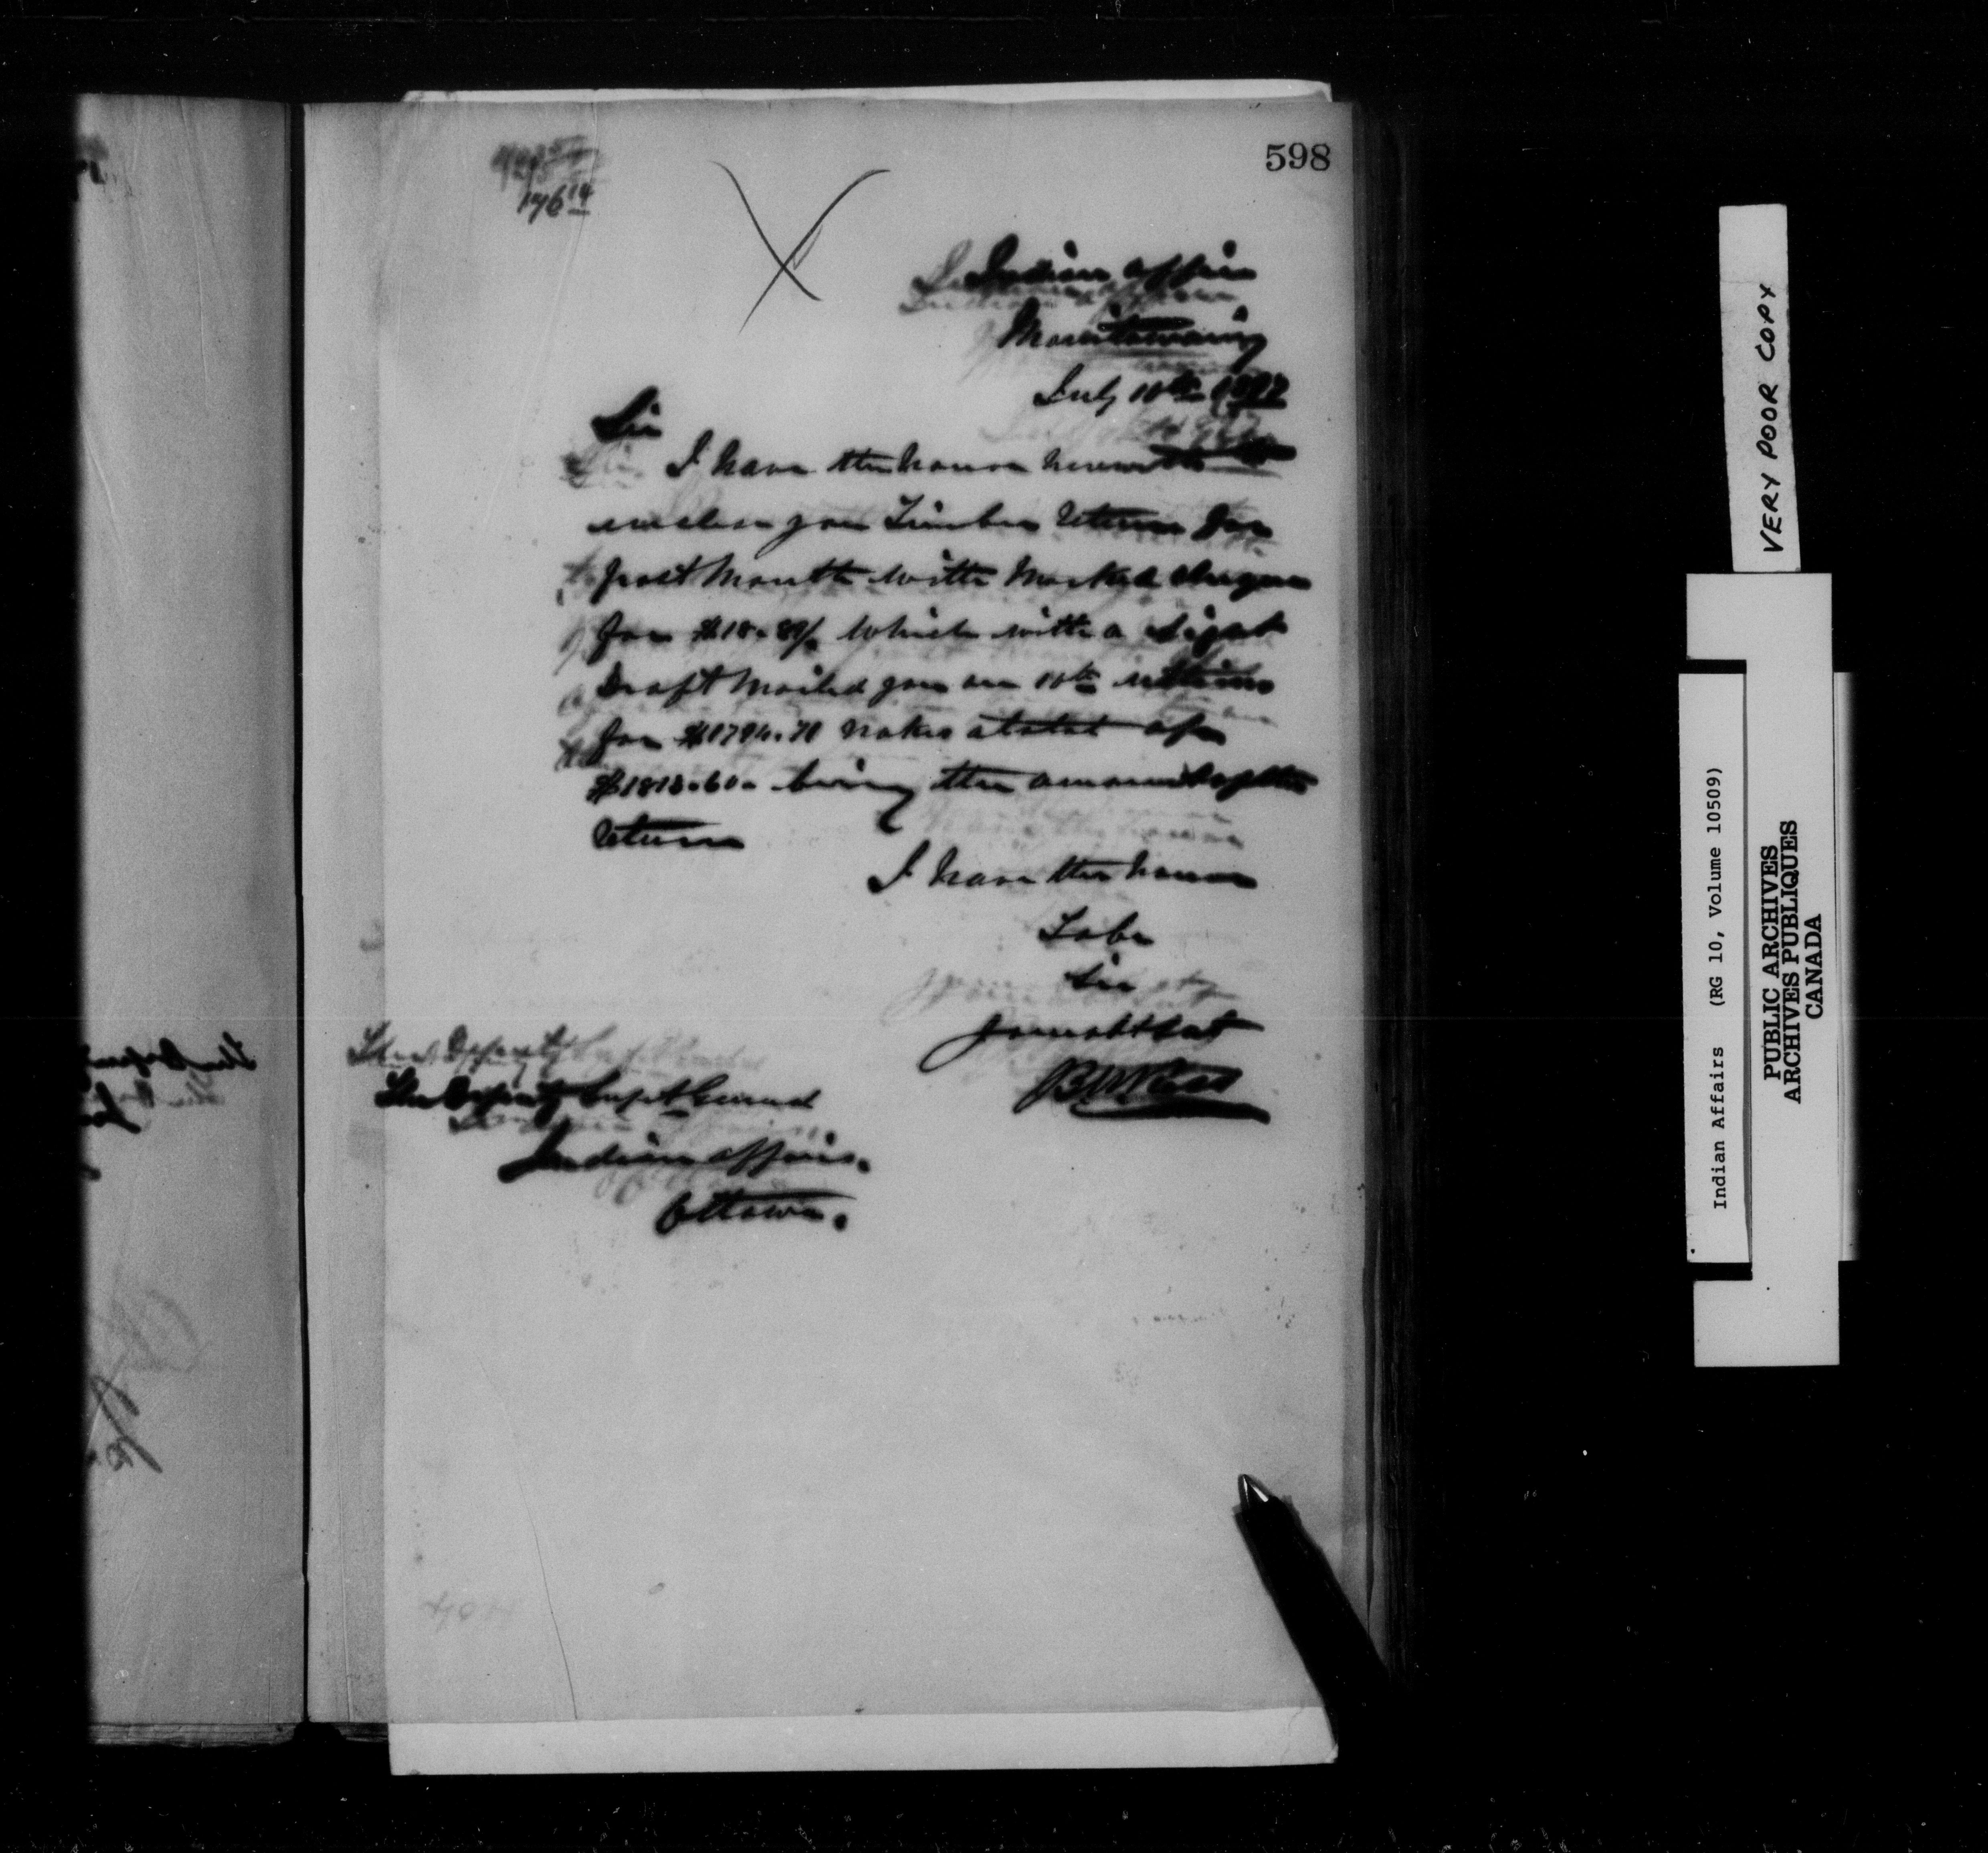 598
176 14
Indian Affairs
Manitowaning
July 10th 1897
Sir
I have the honor herewith to
enclose you Timber Return for
past Month with Marked cheque
for $18.89/ which with a sight
Draft Mailed you on 10th
for $1794.71 makes a total of
$1813.60. being the amount of the
Return
I have the honor
To be
Sir
Your obt Servt
BWRoss
The Deputy Supt General
Indian Affairs.
Ottawa.
VERY POOR COPY
Indian Affairs (RG 10, Volume 10509)
PUBLIC ARCHIVES
ARCHIVES PUBLIQUES
CANADA